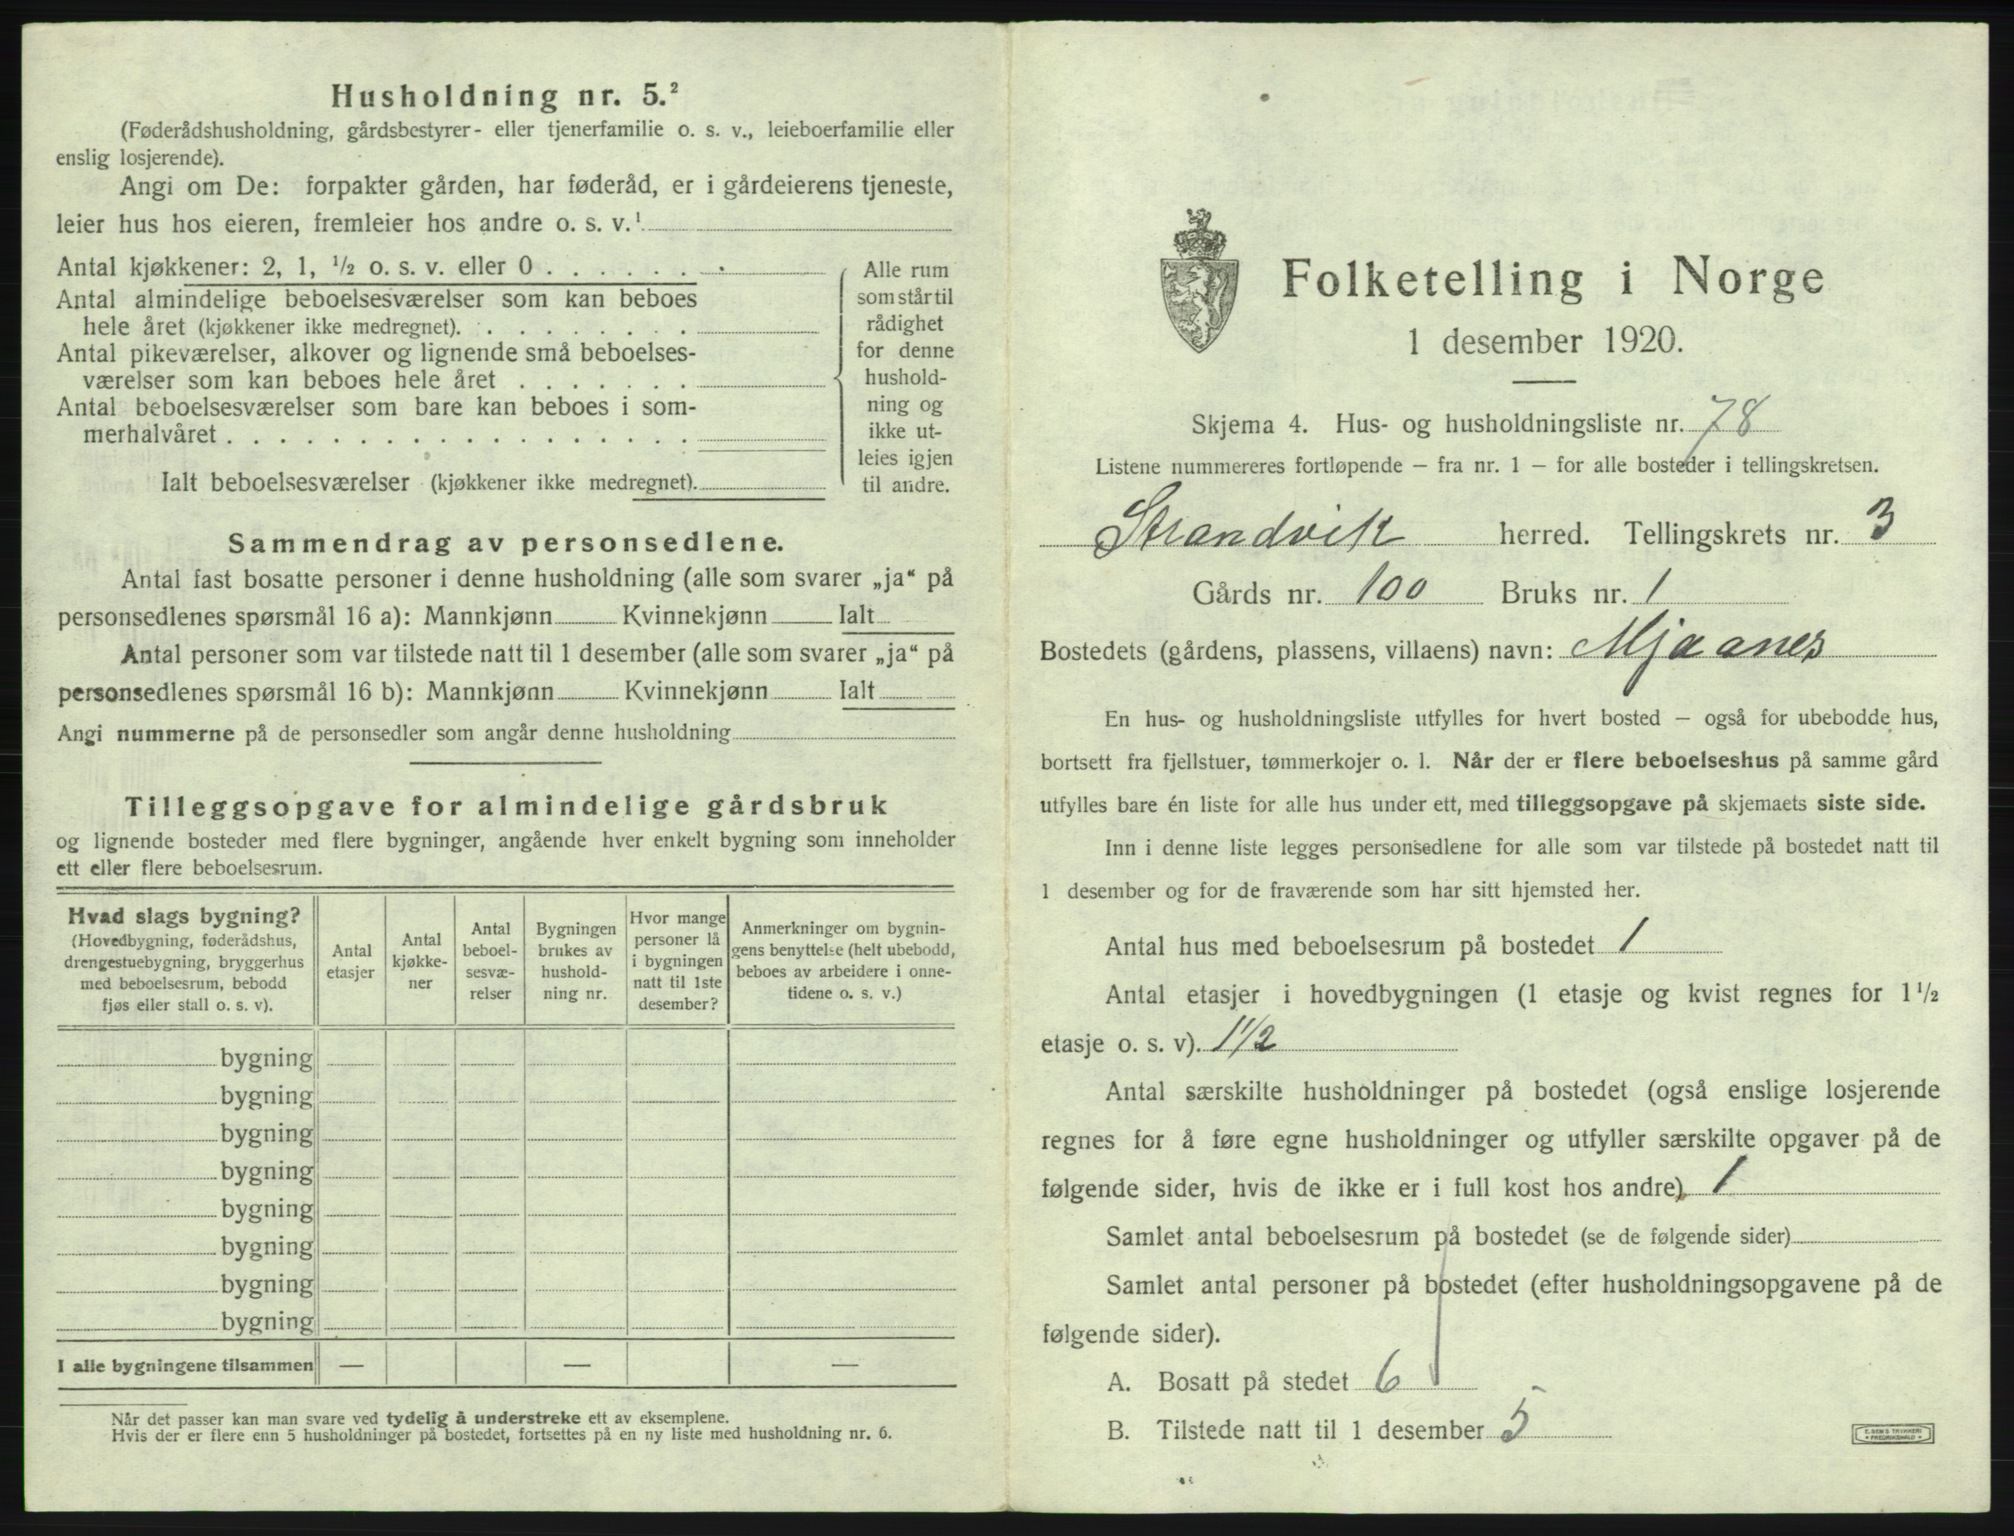 Husholdning nr. 5.²
(Føderådshusholdning, gårdsbestyrer- eller tjenerfamilie o. s. v., leieboerfamilie eller
enslig losjerende).
Angi om De: forpakter gården, har føderåd, er i gårdeierens tjeneste,
leier hus hos eieren, fremleier hos andre o. s. v.¹
Antal kjøkkener: 2, 1, ½ o. s. v. eller 0 . . . . . .
Antal almindelige beboelsesværelser som kan beboes
hele året (kjøkkener ikke medregnet). . . . . . . . .
Antal pikeværelser, alkover og lignende små beboelses-
værelser som kan beboes hele året . . . . . . .
Antal beboelsesværelser som bare kan beboes i som-
merhalvåret . . . . . . . . . . . . . . . . . .
Ialt beboelsesværelser (kjøkkener ikke medregnet).
Alle rum
som står til
rådighet
for denne
hushold-
ning og
ikke ut-
leies igjen
til andre.
Sammendrag av personsedlene.
Antal fast bosatte personer i denne husholdning (alle som svarer „ja“ på
personsedlenes spørsmål 16 a): Mannkjønn Kvinnekjønn Ialt
Antal personer som var tilstede natt til 1 desember (alle som svarer „ja“ på
personsedlenes spørsmål 16 b): Mannkjønn Kvinnekjønn Ialt
Angi nummerne på de personsedler som angår denne husholdning
Tilleggsopgave for almindelige gårdsbruk
og lignende bosteder med flere bygninger, angående hver enkelt bygning som inneholder
ett eller flere beboelsesrum.
Hvad slags bygning?
(Hovedbygning, føderådshus,
drengestuebygning, bryggerhus
med beboelsesrum, bebodd
fjøs eller stall o. s. v).
Antal
etasjer
Antal
kjøkke-
ner
Antal
beboel-
sesvæ-
relser
Bygningen
brukes av
hushold-
ning nr.
Hvor mange
personer lå
i bygningen
natt til 1ste
desember?
Anmerkninger om bygnin-
gens benyttelse (helt ubebodd,
beboes av arbeidere i onne-
tidene o. s. v.)
bygning
bygning
bygning
bygning
bygning
bygning
bygning
bygning
I alle bygningene tilsammen — — —
Når det passer kan man svare ved tydelig å understreke ett av eksemplene.
Hvis der er flere enn 5 husholdninger på bostedet, fortsettes på en ny liste med husholdning nr. 6.
Folketelling i Norge
1 desember 1920.
Skjema 4. Hus- og husholdningsliste nr. 78
Listene nummereres fortløpende — fra nr. 1 — for alle bosteder i tellingskretsen.
Strandvik herred. Tellingskrets nr. 3
Gårds nr. 100 Bruks nr. 1
Bostedets (gårdens, plassens, villaens) navn: Mjaanes
En hus- og husholdningsliste utfylles for hvert bosted — også for ubebodde hus,
bortsett fra fjellstuer, tømmerkojer o. l. Når der er flere beboelseshus på samme gård
utfylles bare én liste for alle hus under ett, med tilleggsopgave på skjemaets siste side.
Inn i denne liste legges personsedlene for alle som var tilstede på bostedet natt til
1 desember og for de fraværende som har sitt hjemsted her.
Antal hus med beboelsesrum på bostedet 1
Antal etasjer i hovedbygningen (1 etasje og kvist regnes for 1½
etasje o. s. v). 1½
Antal særskilte husholdninger på bostedet (også enslige losjerende
regnes for å føre egne husholdninger og utfyller særskilte opgaver på de
følgende sider, hvis de ikke er i full kost hos andre) 1
Samlet antal beboelsesrum på bostedet (se de følgende sider)
Samlet antal personer på bostedet (efter husholdningsopgavene på de
følgende sider).
A. Bosatt på stedet 6
B. Tilstede natt til 1 desember 5